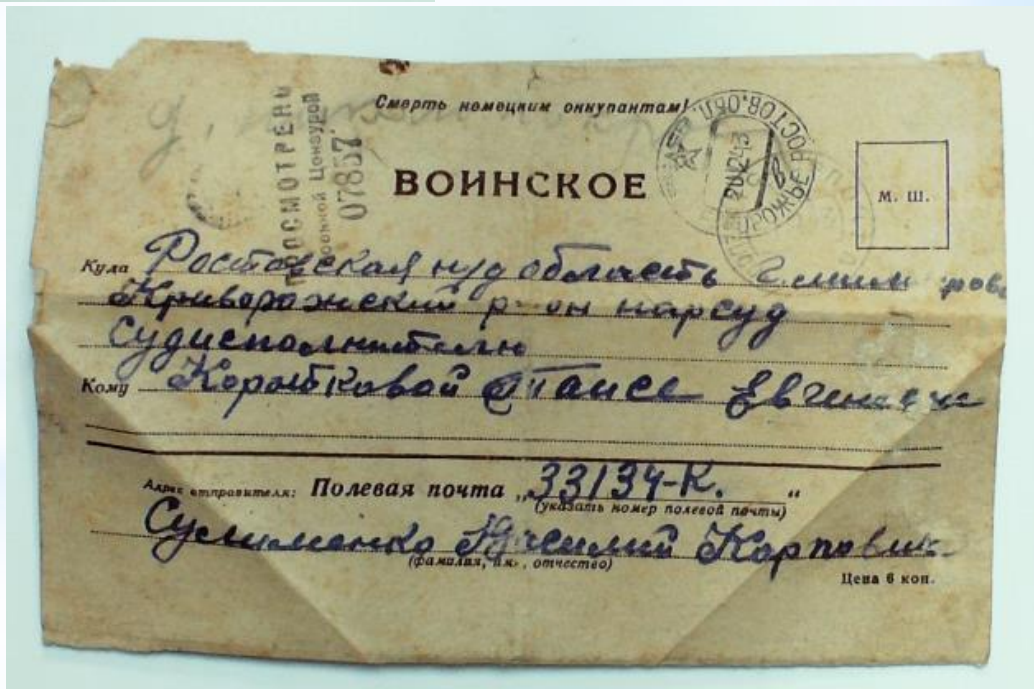 Смерть немецким оккупантам!
ПРОСМОТРЕНО
Военной Цензурой
07857
РОСТОВ.ОБЛ.
ВОИНСКОЕ
М. Ш.
Куда Ростовская н/д область
Криворожский р-он нарсуд
Судисполнителю
Кому Коротковой Таисе
Адрес отправителя: Полевая почта „33134-К.“
(указать номер полевой почты)
Сулименко Василий Карпович
(фамилия, имя, отчество)
Цена 6 коп.